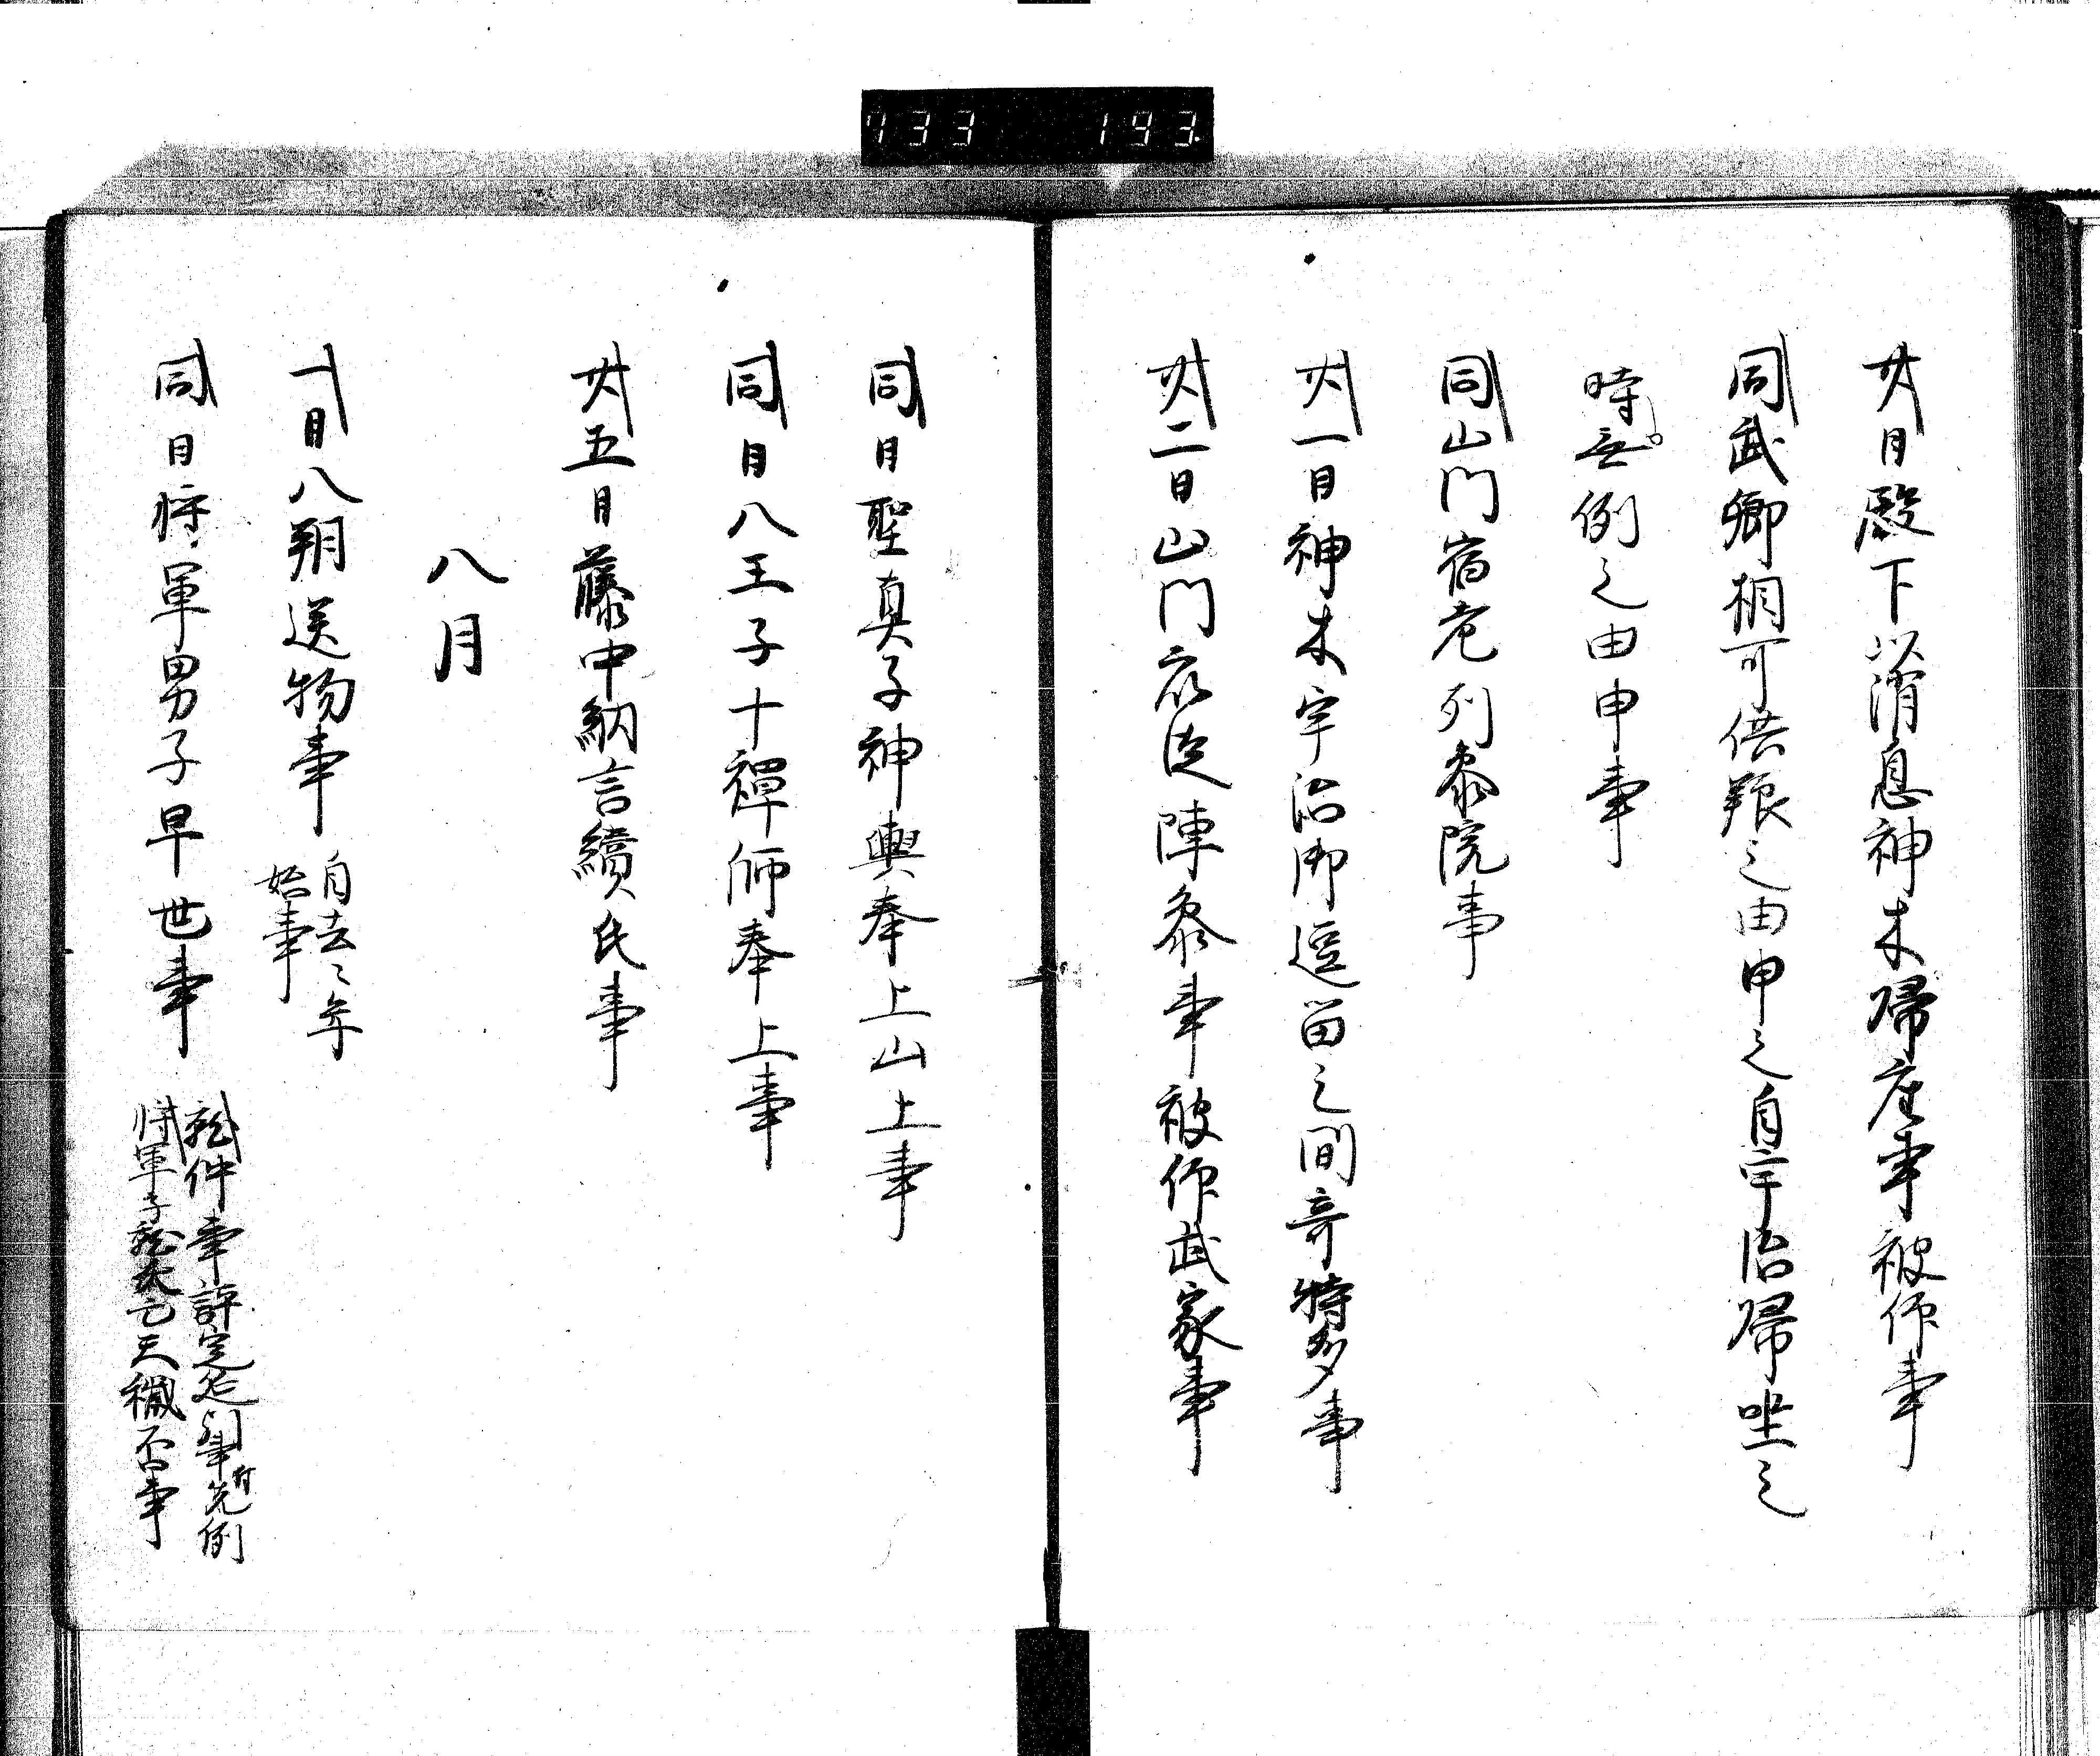 733 193
廿日殿下以消息神木帰座事被仰事
同武卿相可供粮之由申之自宇治帰坐之
時無例之由申事
同山門宿老列参院事
廿一日神木宇治御逗留之間奇特多事
廿二日山門衆徒陣参事被仰武家事
同日聖真子神輿奉上山上事
同日八王子十禅師奉上事
廿五日藤中納言續氏事
八月
一日八朔送物事 自去々年
始事
同日将軍男子早世事
就件事評定延引事有先例
将軍子就夭亡天穢否事